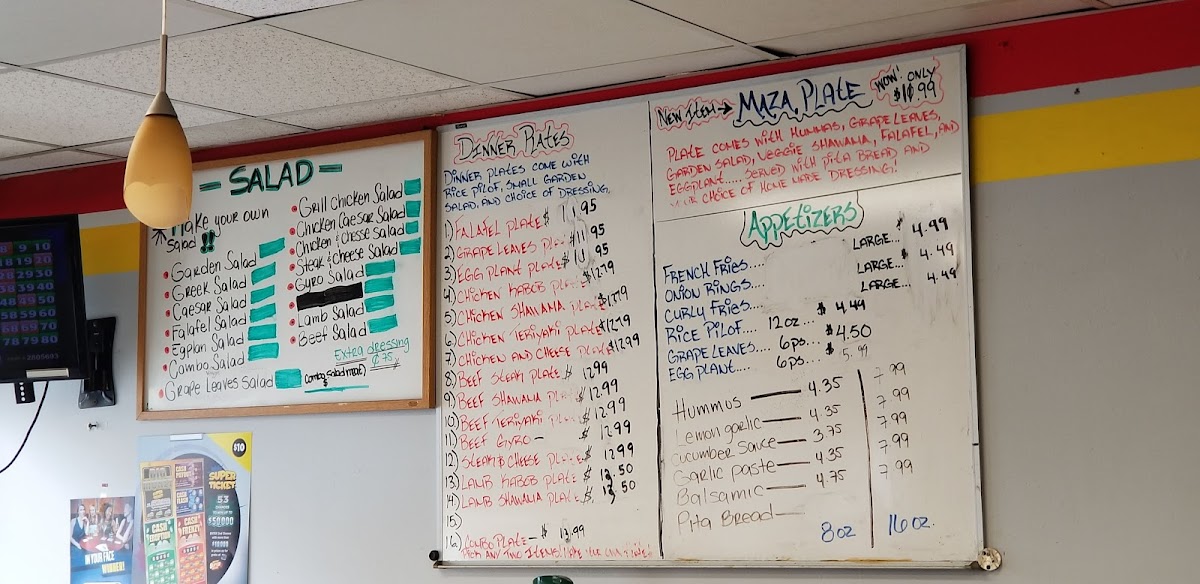 SALAD
Make your own
Salad !!
Garden Salad
Greek Salad
Caesar Salad
Falafel Salad
Egplan Salad
Combo Salad
Grape Leaves Salad
Grill Chicken Salad
Chicken Caesar Salad
Chicken & Chesse Salad
Steak & cheese Salad
Gyro Salad
Lamb Salad
Beef Salad
Extra dressing
¢75
DINNER PLATES
DINNER PLATES COME WITH
RICE PILOF, SMALL GARDEN
SALAD, AND CHOICE OF DRESSING.
1) FALAFEL PLATE $ 11.95
2) GRAPE LEAVES $11.95
3) EGG PLANT PLATE $11.95
4) CHICKEN KABOB $12.79
5) CHICKEN SHAWAMA $12.79
6) CHICKEN TERIYAKI PLATE $12.79
7) CHICKEN AND CHEESE $12.99
8) BEEF STEAK PLATE $ 12.99
9) BEEF SHAWAMA 12.99
10) BEEF TERIYAKI $ 12.99
11) BEEF GYRO - $ 12.99
12) STEAK & CHEESE 12.99
13) LAMB KABOB PLATE $ 13.50
14) LAMB SHAWAMA PLATE $ 13.50
15)
16) COMBO PLATE - $ 13.99
PICK ANY TWO ITEMS!
NEW ITEM → MAZA PLATE
WOW! ONLY
$10.99
PLATE COMES WITH HUMMAS, GRAPE LEAVES,
GARDEN SALAD, VEGGIE SHAWAMA, FALAFEL, AND
EGGPLANT..... SERVED WITH PITA BREAD AND
CHOICE OF HOME MADE DRESSING!
APPETIZERS
FRENCH FRIES.... LARGE...$ 4.99
ONION RINGS.... LARGE...$ 4.49
CURLY FRIES.... LARGE... 4.49
RICE PILOF.... 12oz... $ 4.49
GRAPE LEAVES.... 6ps... $4.50
EGG PLANT.... 6ps... $ 5.99
Hummus — 4.35 7.99
Lemon garlic — 4.35 7.99
Cucumber Sauce — 3.75 7.99
Garlic paste — 4.35 7.99
Balsamic — 4.75 7.99
Pita Bread —
8oz 16oz.
$10
CASH
SUPER
TICKET
53
$50000
IN YOUR FACE
WORDEN!